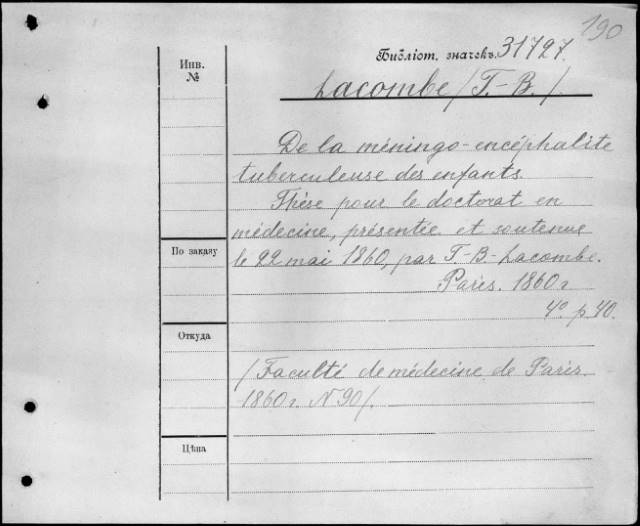 190
Библіот. значекъ. 31727.
Инв.
№
Lacombe / T.-B. /.
De la méningo-encéphalite
tuberculeuse des enfants.
Thèse pour le doctorat en
médecine, présentée et soutenue
По заказу
le 22 mai 1860, par T-B-Lacombe.
Paris. 1860 г
4° p. 40.
Откуда
/Faculté de médecine de Paris.
1860 г. N 90/.
Цѣна